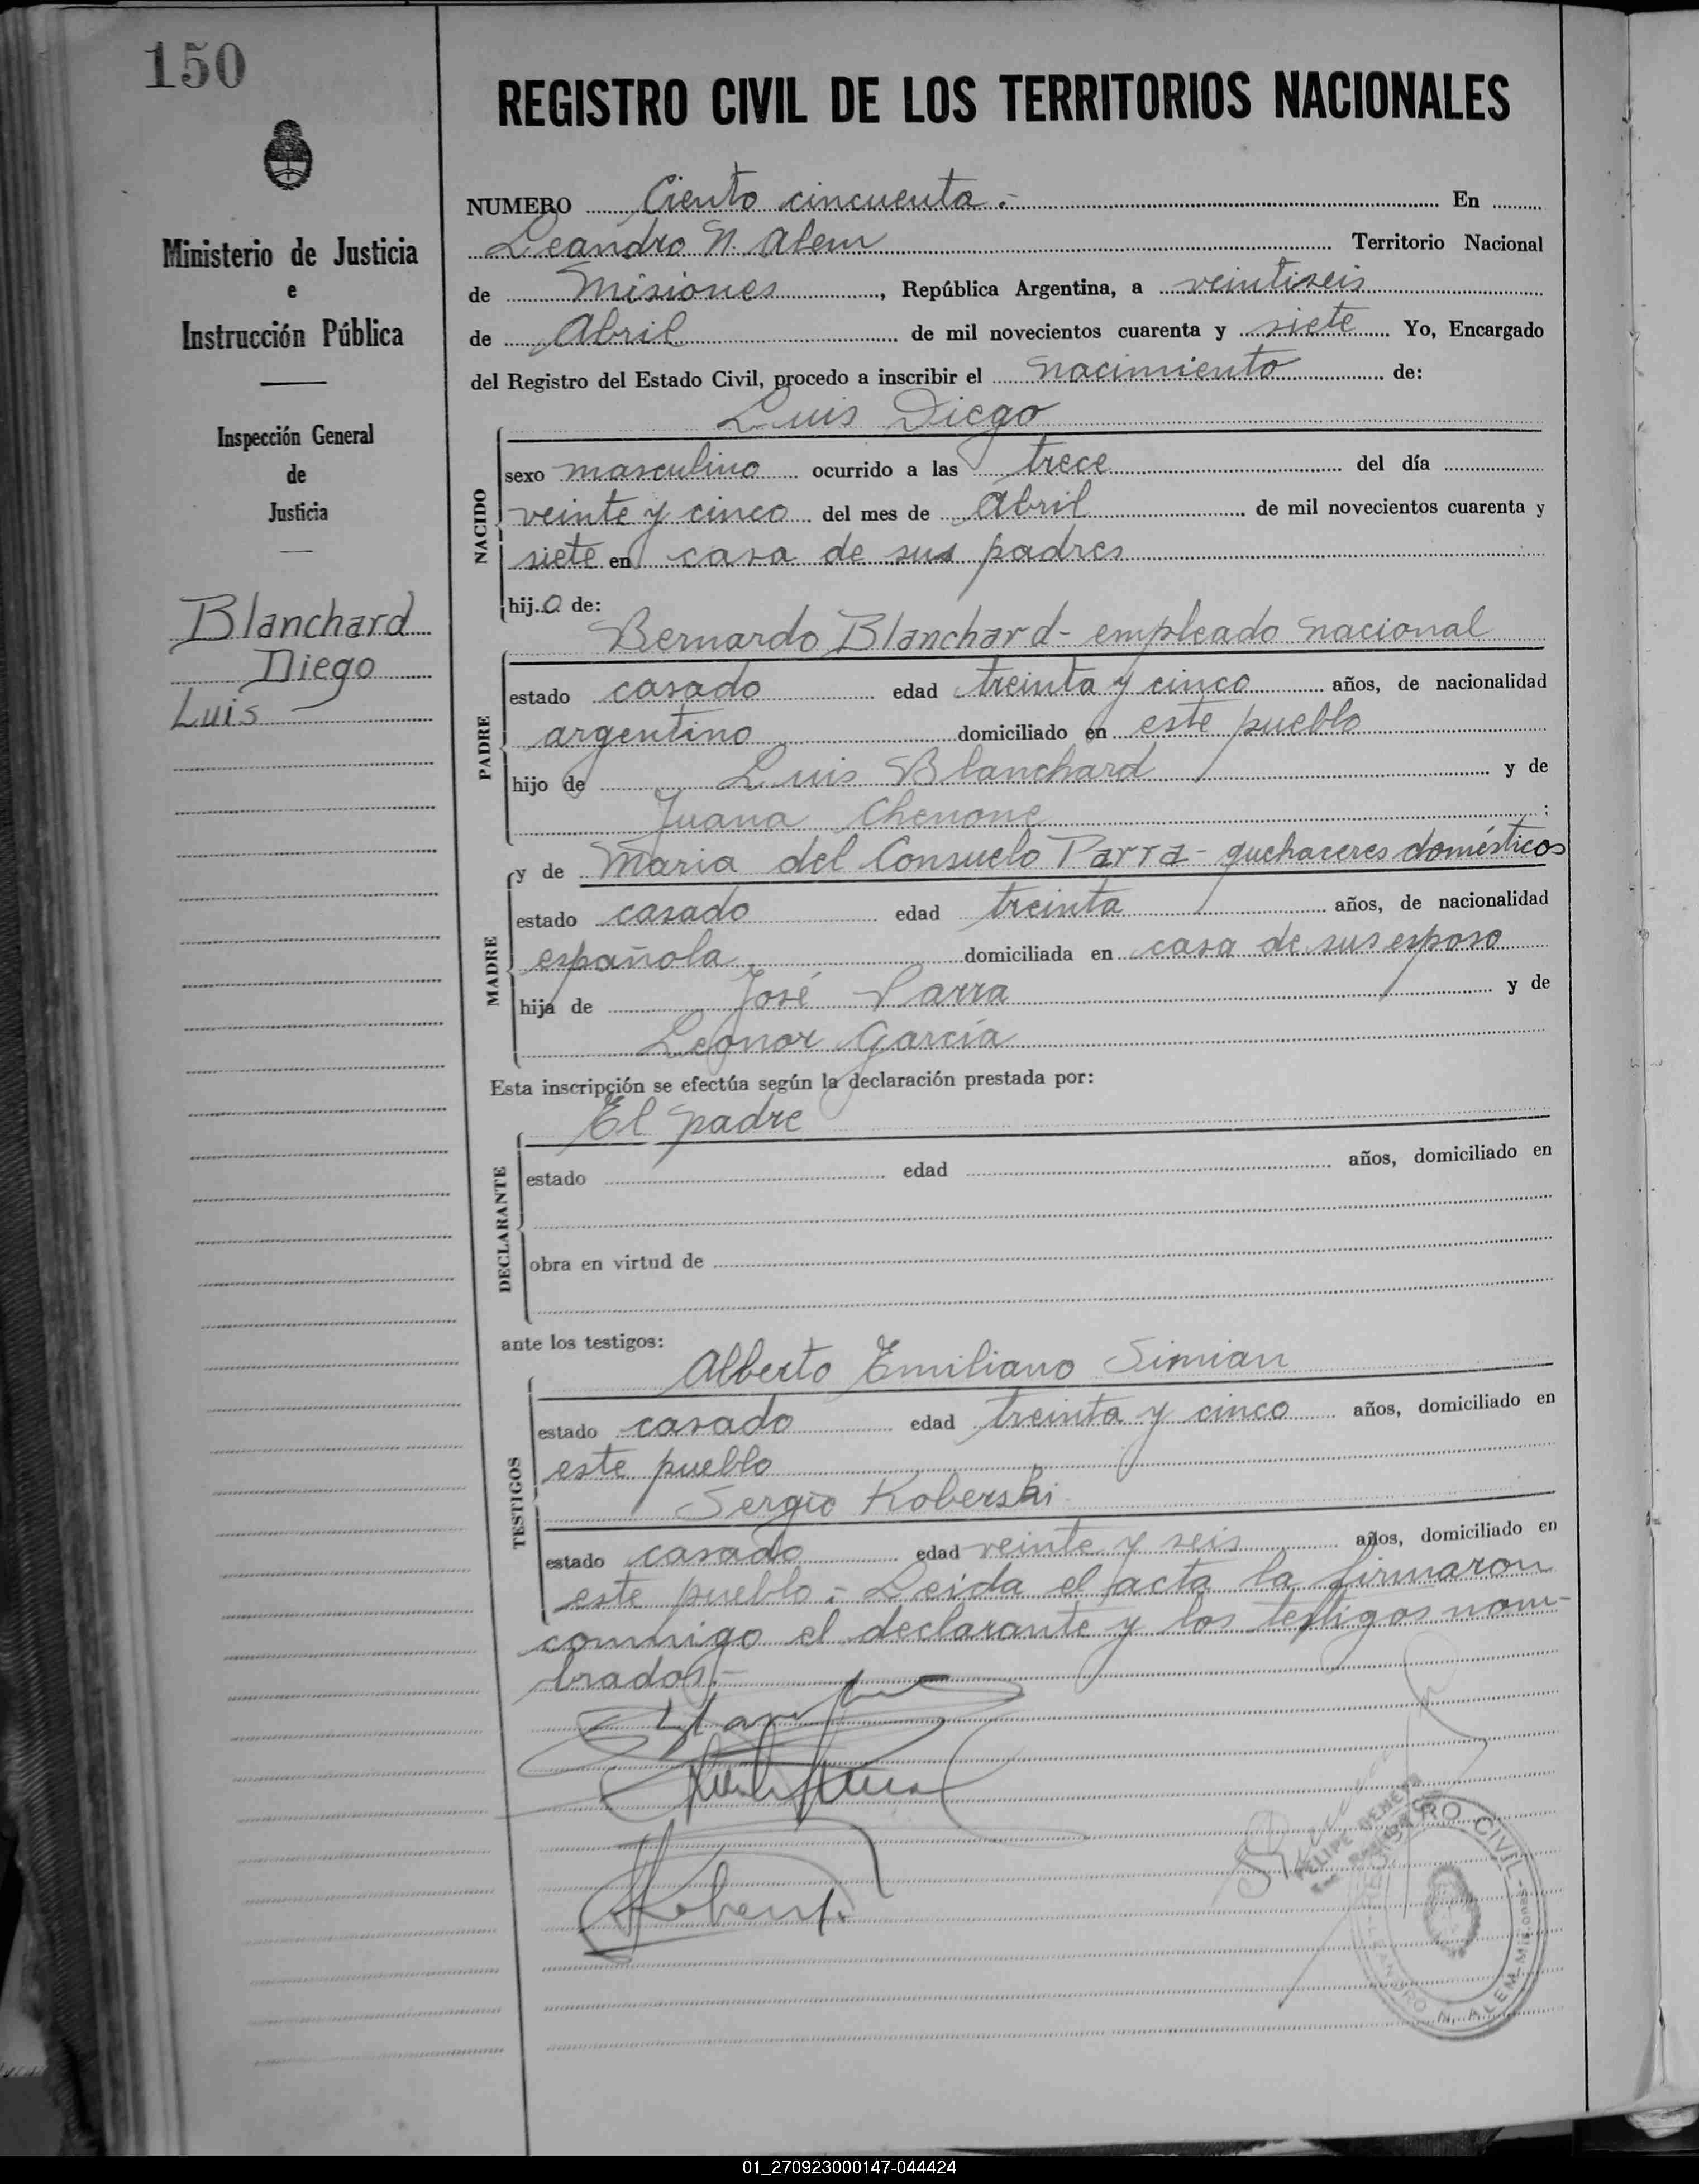 150
Ministerio de Justicia
e
Instrucción Pública
Inspección General
de
Justicia
Blanchard
Diego
Luis
REGISTRO CIVIL DE LOS TERRITORIOS NACIONALES
NUMERO Ciento cincuenta.- En
Leandro N. Alem Territorio Nacional
de Misiones, República Argentina, a veintiseis
de Abril de mil novecientos cuarenta y siete Yo, Encargado
del Registro del Estado Civil, procedo a inscribir el nacimiento de:
Luis Diego
NACIDO
sexo masculino ocurrido a las trece del día
veinte y cinco del mes de Abril de mil novecientos cuarenta y
siete en casa de sus padres
hijo de:
Bernardo Blanchard- empleado nacional
PADRE
estado casado edad treinta y cinco años, de nacionalidad
argentino domiciliado en este pueblo
hijo de Luis Blanchard y de
Juana Chenone ;
y de Maria del Consuelo Parra- quehaceres domésticos
MADRE
estado casado edad treinta años, de nacionalidad
española domiciliada en casa de sus esposo
hija de José Parra y de
Leonor García
Esta inscripción se efectúa según la declaración prestada por:
El padre
DECLARANTE
estado edad años, domiciliado en
obra en virtud de
ante los testigos:
Alberto Emiliano Simian
TESTIGOS
estado casado edad treinta y cinco años, domiciliado en
este pueblo
Sergio Koberski
estado casado edad veinte y seis años, domiciliado en
este pueblo.- Leida el acta la firmaron
conmigo el declarante y los testigos nom-
brados.-
FELIPE
REGISTRO CIVIL - LEANDRO N. ALEM-Misiones
01_270923000147-044424